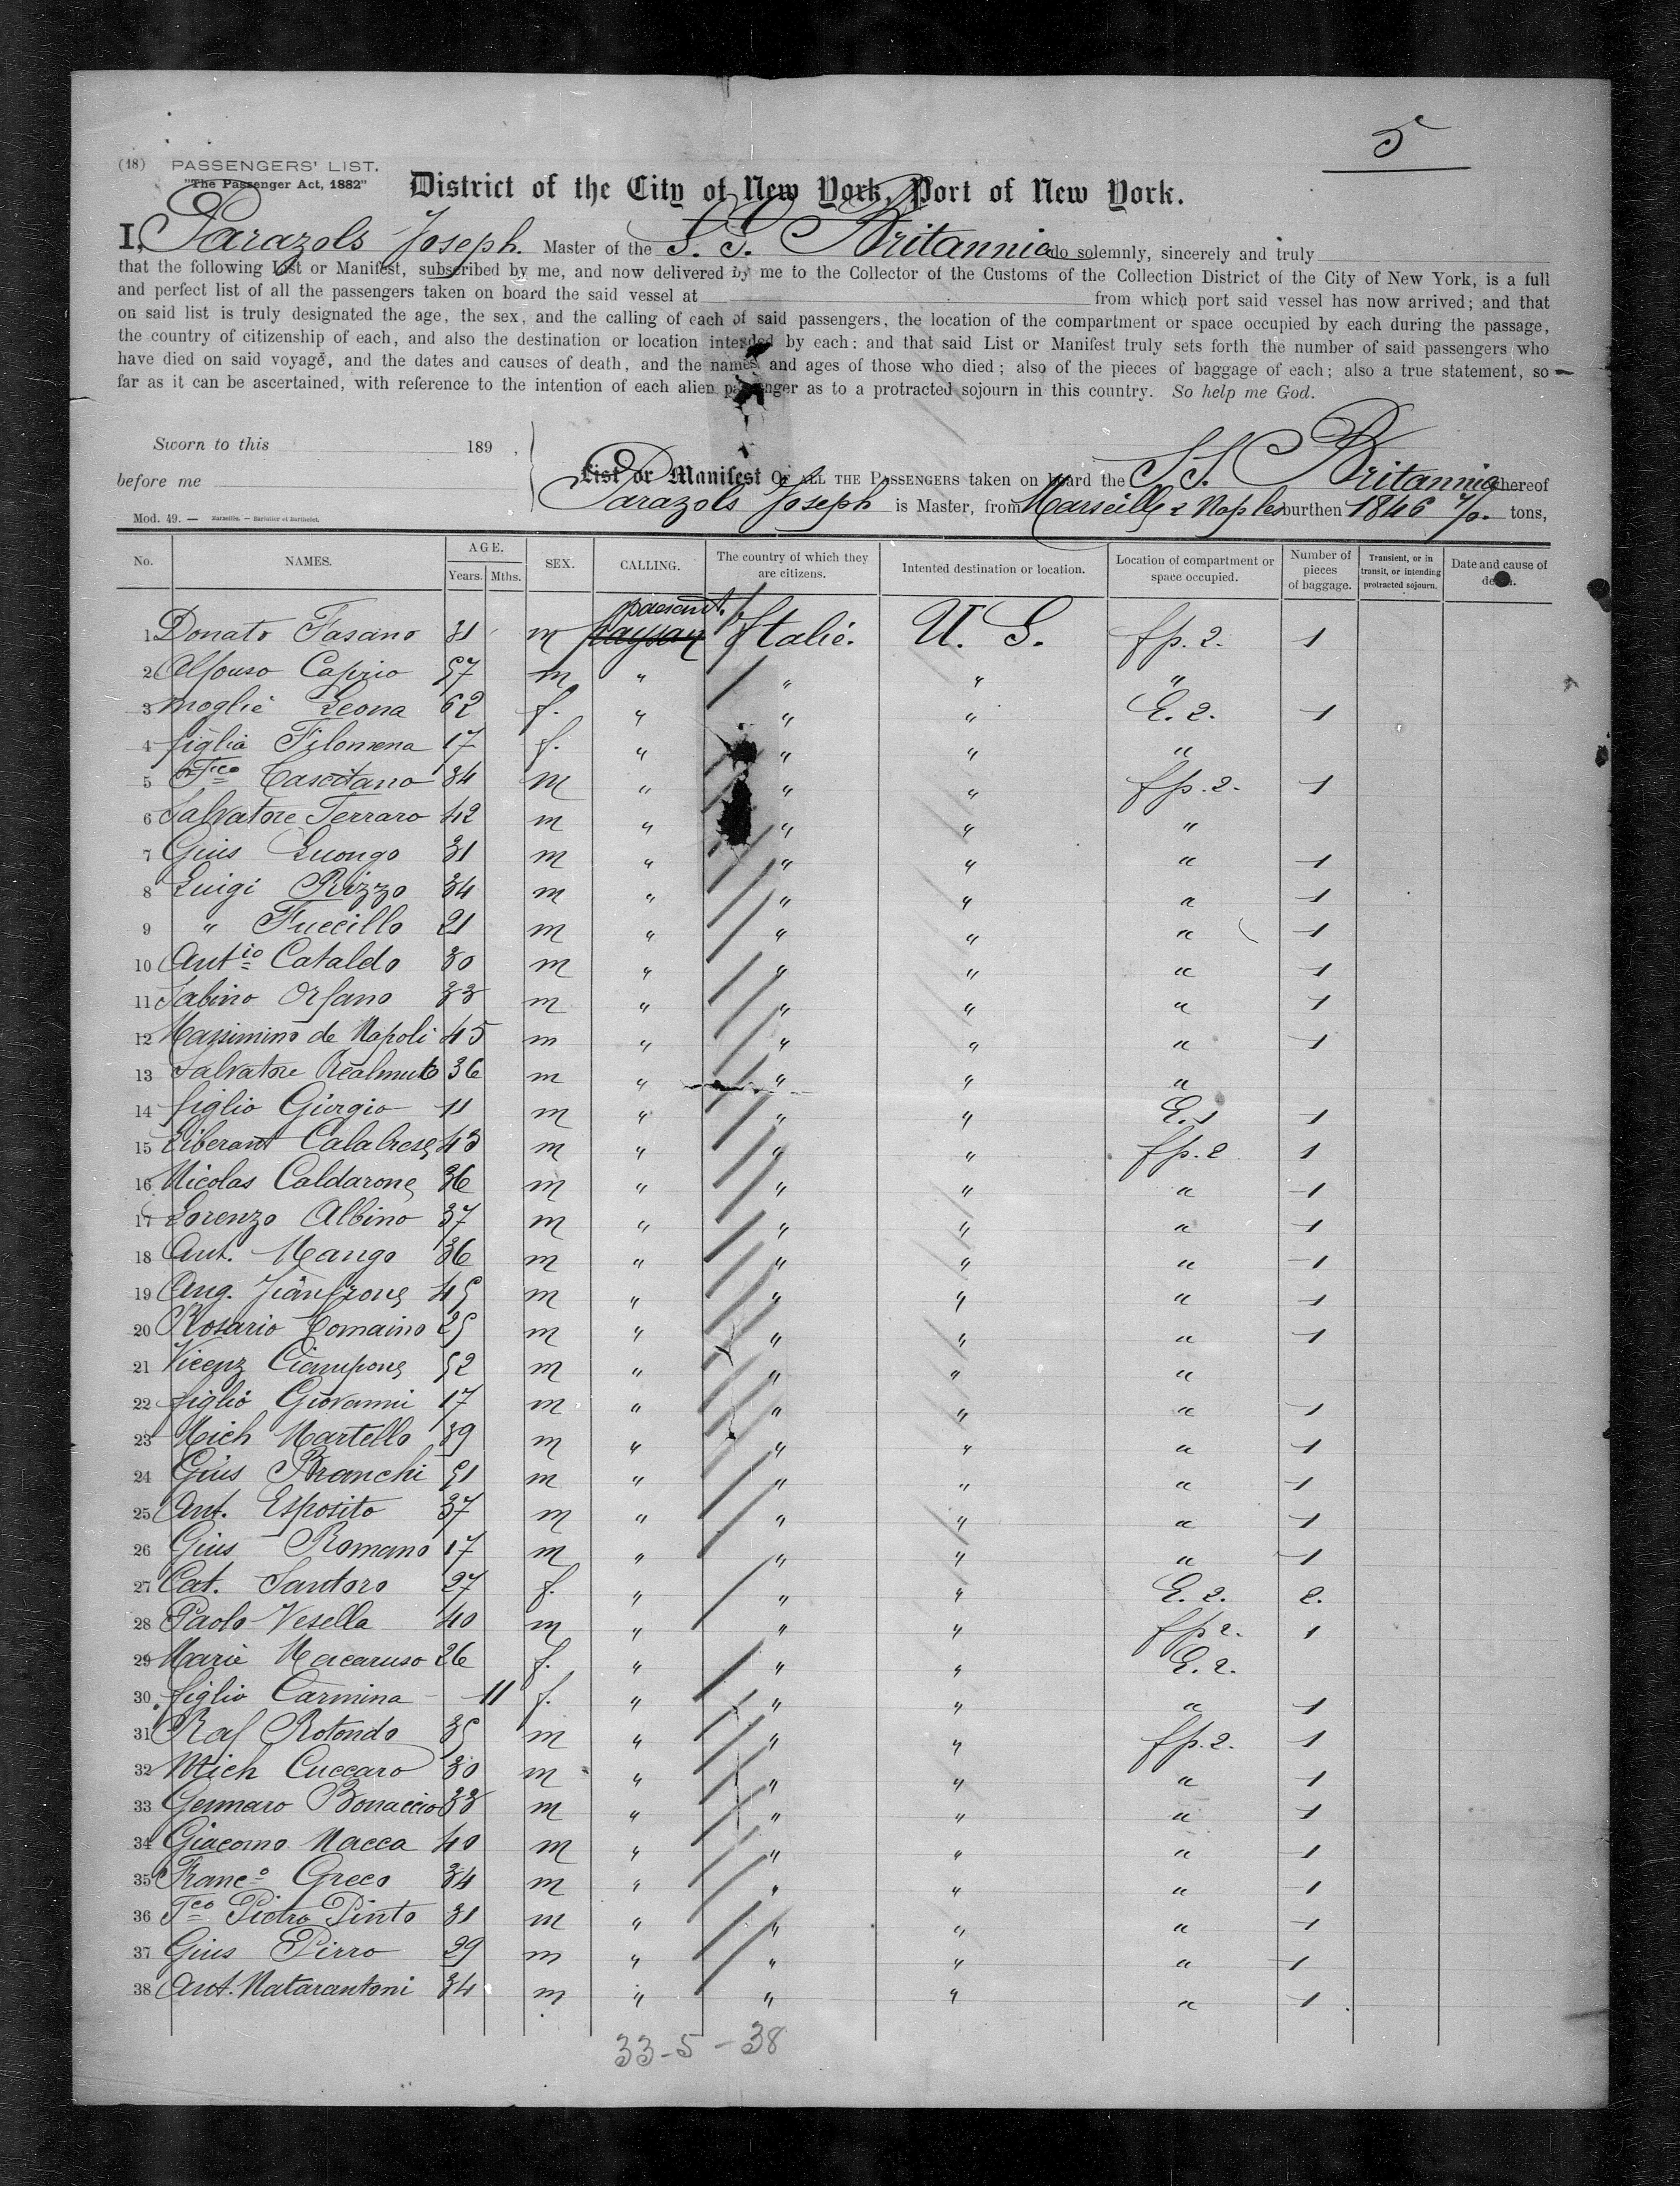 5
(18) PASSENGERS' LIST.
"The Passenger Act, 1882"
District of the City of New York, Port of New York.
I, Parazols Joseph. Master of the S. S. Britannia do solemnly, sincerely and truly
that the following List or Manifest, subscribed by me, and now delivered by me to the Collector of the Customs of the Collection District of the City of New York, is a full
and perfect list of all the passengers taken on board the said vessel at from which port said vessel has now arrived; and that
on said list is truly designated the age, the sex, and the calling of each of said passengers, the location of the compartment or space occupied by each during the passage,
the country of citizenship of each, and also the destination or location intended by each: and that said List or Manifest truly sets forth the number of said passengers who
have died on said voyage, and the dates and causes of death, and the names and ages of those who died; also of the pieces of baggage of each; also a true statement, so
far as it can be ascertained, with reference to the intention of each alien passenger as to a protracted sojourn in this country. So help me God.
Sworn to this 189 ,
before me
List or Manifest OF ALL THE PASSENGERS taken on board the S. S. Britannia thereof
Parazols Joseph is Master, from Marseille & Naples burthen 1846 tons,
Mod. 49. — Marseille. — Barlatier et Barthelet.
No. NAMES. AGE. Years. Mths. SEX. CALLING. The country of which they are citizens. Intented destination or location. Location of compartment or space occupied. Number of pieces of baggage. Transient, or in transit, or intending protracted sojourn. Date and cause of death.
1 Donato Fasano 31 m paysan peasant. Italie. U. S. fp. 2. 1
2 Alfonso Caprio 57 m " " " "
3 moglie Leona 62 f. " " " E. 2. 1
4 figlia Filomena 17 f. " " " "
5 Fco Cascitano 34 m " " " fp. 2. 1
6 Salvatore Ferraro 42 m " " " "
7 Gius Luongo 31 m " " " " 1
8 Luigi Rizzo 34 m " " " " 1
9 " Fuccillo 21 m " " " " 1
10 Antio Cataldo 30 m " " " " 1
11 Sabino Orfano 33 m " " " " 1
12 Massimino de Napoli 45 m " " " " 1
13 Salvatore Realmuto 36 m " " " "
14 figlio Giorgio 11 m " " " E. 1 1
15 Liberant Calabrese 43 m " " " fp. 2 1
16 Nicolas Caldarone 36 m " " " " 1
17 Lorenzo Albino 37 m " " " " 1
18 Ant. Mango 36 m " " " " 1
19 Ang. Gianfrone 45 m " " " " 1
20 Rosario Comaino 25 m " " " " 1
21 Vicenz Ciampone 52 m " " " "
22 figlio Giovanni 17 m " " " " 1
23 Mich Martello 39 m " " " " 1
24 Gius Branchi 51 m " " " " 1
25 Ant. Esposito 37 m " " " " 1
26 Gius Romano 17 m " " " " 1
27 Cat. Santoro 27 f. " " " E. 2. 2.
28 Paolo Vesella 40 m " " " fp 2. 1
29 Marie Macaruso 26 f. " " " E. 2.
30 figlio Carmina 11 f. " " " " 1
31 Raf Rotondo 35 m " " " fp. 2. 1
32 Mich Cuccaro 30 m " " " " 1
33 Gennaro Bonaccio 33 m " " " " 1
34 Giacomo Macca 40 m " " " " 1
35 Franco Greco 34 m " " " " 1
36 Fco Pietro Pinto 31 m " " " " 1
37 Gius Pirro 29 m " " " " 1
38 Ant. Matarantoni 34 m " " " " 1
33-5-38